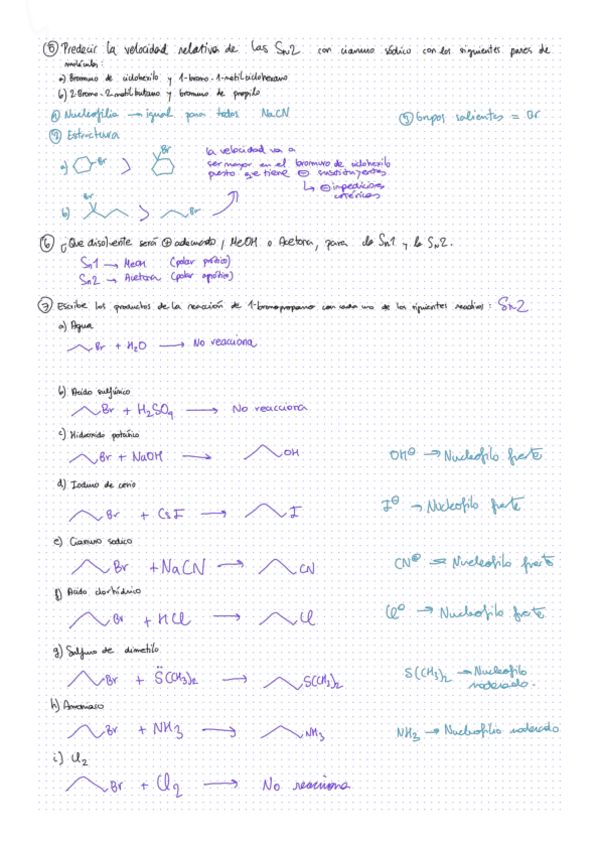 ⑤ Predecir la velocidad relativa de las SN2 con cianuro sódico con los siguientes pares de
moléculas:
a) Bromuro de ciclohexilo y 1-bromo-1-metilciclohexano
b) 2-Bromo-2-metilbutano y bromuro de propilo
Nucleofilia → igual para todos NaCN
Grupos salientes = Br
Estructura
a) Br > Br
la velocidad va a
ser mayor en el bromuro de ciclohexilo
puesto que tiene ⊖ sustituyentes
↳ ⊖ impedimentos
estéricos
b) Br > Br
⑥ ¿Que disolvente será ⊕ adecuado, MeOH o Acetona, para la SN1 y la SN2.
SN1 → MeOH (polar prótico)
SN2 → Acetona (polar aprótico)
⑦ Escribe los productos de la reacción de 1-bromopropano con cada uno de los siguientes reactivos: SN2
a) Agua
Br + H2O → No reacciona
b) Acido sulfúrico
Br + H2SO4 → No reacciona
c) Hidroxido potásico
Br + NaOH → OH OH⊖ → Nucleofilo fuerte
d) Ioduro de cesio
Br + CsI → I I⊖ → Nucleofilo fuerte
e) Cianuro sodico
Br + NaCN → CN CN⊖ → Nucleofilo fuerte
f) Acido clorhídrico
Br + HCl → Cl Cl⊖ → Nucleofilo fuerte
g) Sulfuro de dimetilo
Br + S(CH3)2 → S(CH3)2 S(CH3)2 → Nucleofilo
moderado.
h) Amoniaco
Br + NH3 → NH3 NH3 → Nucleofilo moderado
i) Cl2
Br + Cl2 → No reacciona